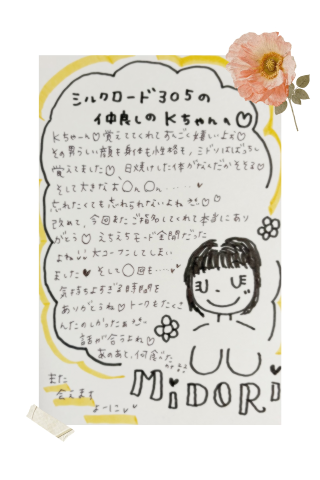 シルクロード305の
仲良しのKちゃんへ♡
Kちゃーん♡覚えててくれてすっごく嬉しいよぉ♡
その男らしい顔も身体も性格も、ミドリはばっちし
覚えてました♡ 日焼けした体がなんだかそそる♡
そして大きなお〇ん〇ん……♥
忘れたくても忘れられないよねぇ
改めて、今回またご指名してくれて本当にあり
がとう♡ えちえちモード全開だった
よね 大コーフンしてしまい
ました♥ そして〇回も…♥
気持ちよすぎる時間を
ありがとうね♡トークもたくさ
んたのしかったぁ
話が合うよね♡
あのあと、何食べた
また
会えます
よーに♥
MiDORi